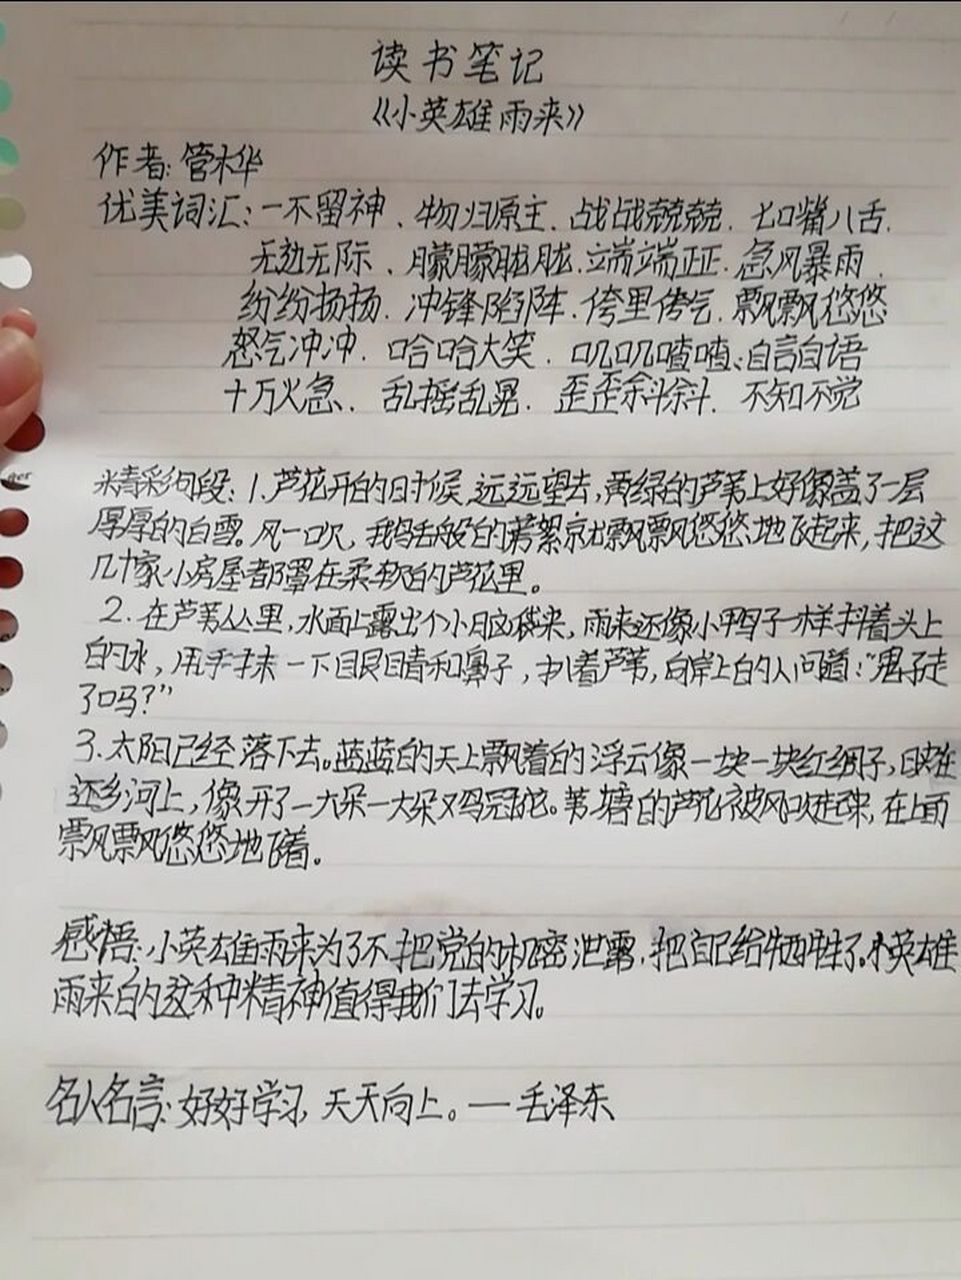 读书笔记
《小英雄雨来》
作者:管桦
优美词汇:一不留神、物归原主、战战兢兢、七口嘴八舌、
无边无际、朦朦胧胧、端端正正、急风暴雨、
纷纷扬扬、冲锋陷阵、侉里侉气、飘飘悠悠
怒气冲冲、哈哈大笑、叽叽喳喳、自言自语
十万火急、乱摇乱晃、歪歪斜斜、不知不觉
精彩句段:1.芦花开的时候,远远望去,黄绿的芦苇上好像盖了一层
厚厚的白雪。风一吹,鹅毛般的苇絮就飘飘悠悠地飞起来,把这
几十家小房屋都罩在柔软的芦花里。
2.在芦苇丛里,水面上露出个小脑袋来,雨来还像小鸭子一样抖着头上
的水,用手抹一下眼睛和鼻子,扒着芦苇,向岸上的人问道:“鬼子走
了吗?”
3.太阳已经落下去。蓝蓝的天上飘着的浮云像一块一块红绸子,映在
还乡河上,像开了一大朵一大朵鸡冠花。苇塘的芦花被风吹起来,在上面
飘飘悠悠地飞着。
感悟:小英雄雨来为了不把党的机密泄露,把自己给牺牲了。小英雄
雨来的这种精神值得我们去学习。
名人名言:好好学习,天天向上。一毛泽东